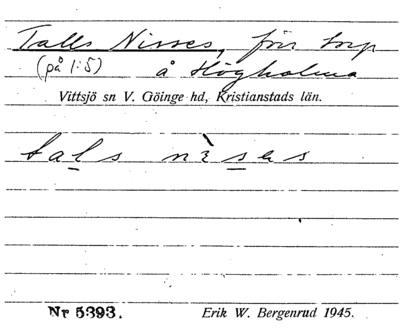 Talls Nisses, förr torp
(på 1:5) å Högholma
Vittsjö sn V. Göinge hd, Kristianstads län.
tals nìses
Nr 5393. Erik W. Bergenrud 1945.